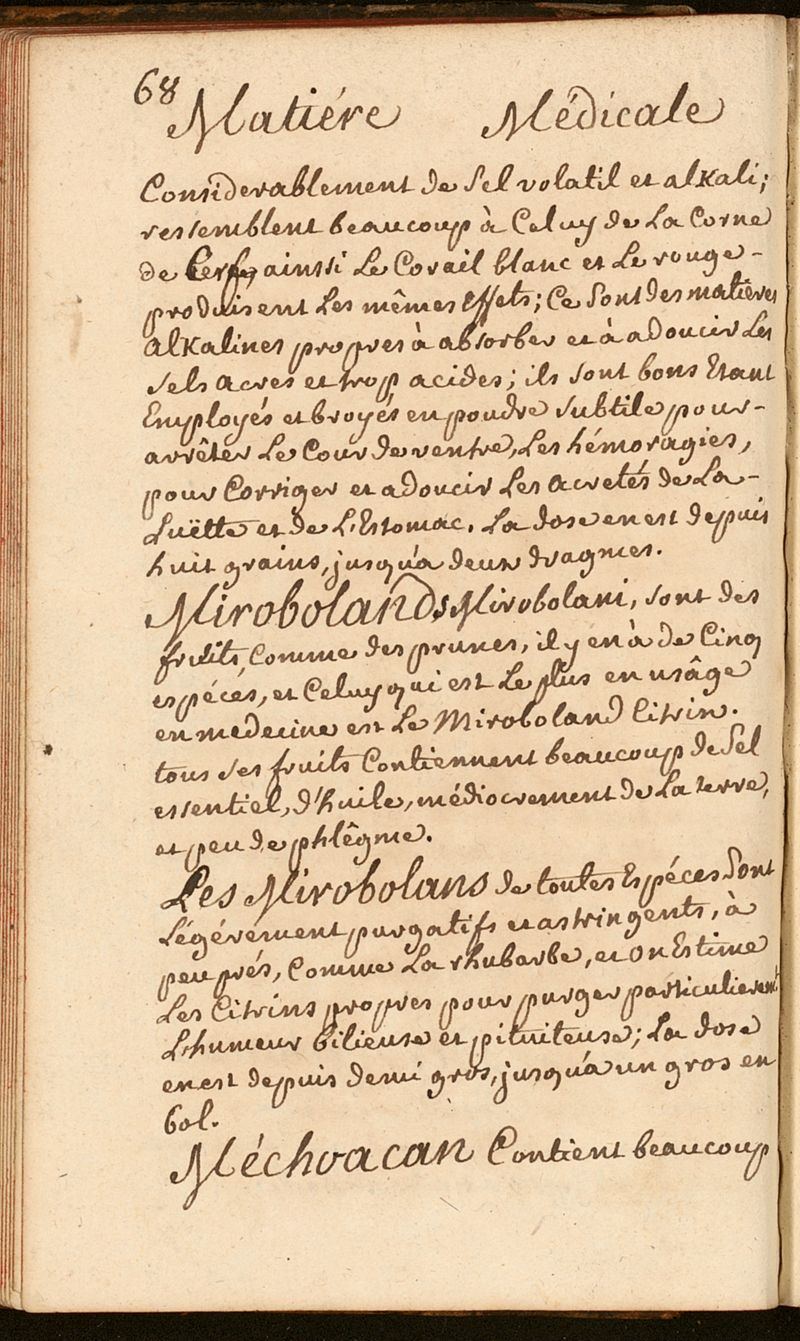 68
Matiére Médicale
Considerablement de Sel volatil et alkali;
ressemblent beaucoup à Celuy de La Corne
de Cerf, ainssi Le Corail blanc et Le rouge-
produisent Les mêmes effets; Ce Sont des matieres
alkalines propres à absorber et à adoucir Les
Sels acres et trop acides; ils sont bons Etant
Employés et broyés en poudre subtile pour-
arrêter Le Cour de ventre, Les hémoragies,
pour Corriger et adoucir Les acretés de La-
Luëtte et de L'Estomac. La dose en est depuis
huit grains, jusqu'a deux dragmes.
Mirobolands Mirobolani, sont des
fruits Comme des prunes, il y en à de Cinq
espécés, et Celuy qui est Le plus en usâge
en medecine est Le Miroboland Citrin.
tous Ses fruits Contiennent beaucoup de Sel
essentiel, d'huile, médiocrement de La terre,
et peu de phlêgme.
Les Mirobolans de toutes Espéces Sont
Légérement purgatifs et astringents, à
peu prés, Comme La rhubarbe, et on Estime
Les Citrins propres pour purger particulierem.t
L'humeur bilieuse et pituiteuse; La dose
en est depuis demi gros, jusqu'a un gros en
bol.
Méchoacan Contient beaucoup